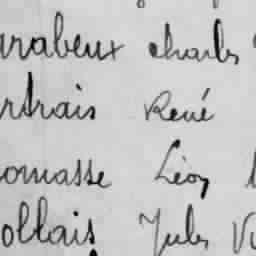 arabeux Charles
rtrais René
omasse Léon
ollais Jules